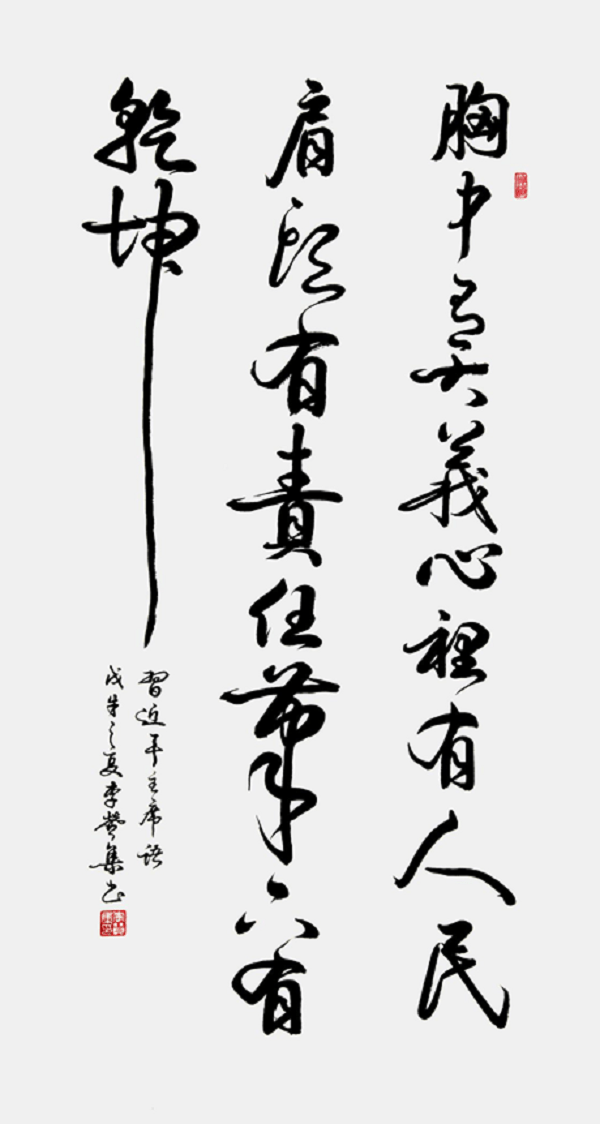 胸中有大義心裡有人民
肩頭有責任筆下有
乾坤
習近平主席語
戊之夏李集书